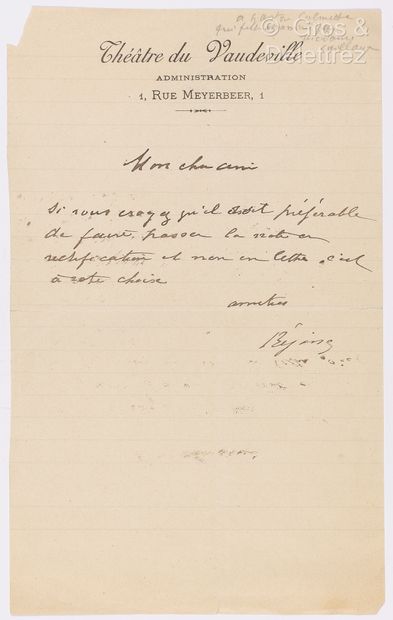 à Gaston Calmette
qui fut
Gros &
Delettrez
Théâtre du Vaudeville
ADMINISTRATION
1, RUE MEYERBEER, 1
Mon cher ami
Si vous croyez qu'il soit préférable
de faire passer la note en
rectification et non en lettre c'est
à votre choix
amitiés
Réjane